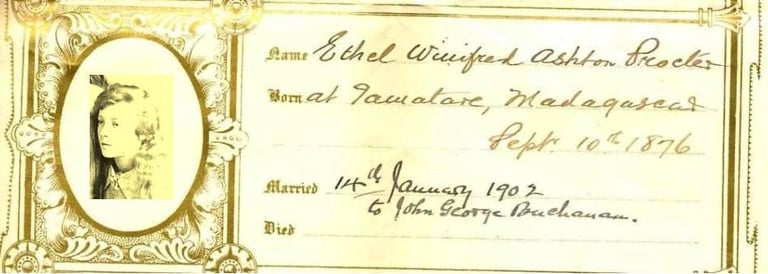 Name Ethel Winifred Ashton Procter
Born at Tamatave, Madagascar
Sept. 10th 1876
Married 14th January 1902
to John George Buchanan.
Died